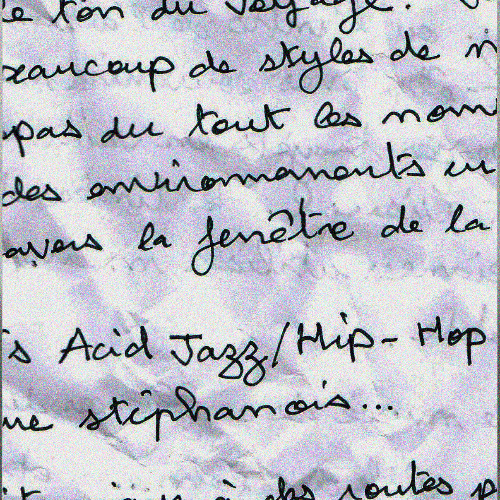 e ton du voyage.
eaucoup de styles de m
pas du tout les nom
des environnements u
avers la fenêtre de la
is Acid Jazz/Hip-Hop
ue stéphanois...
à des routes